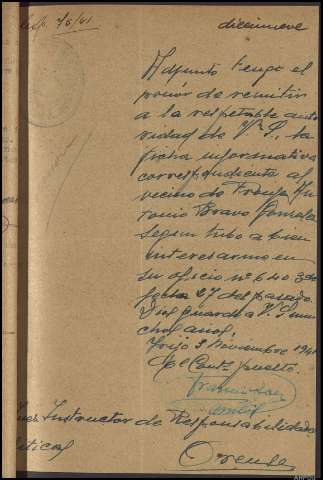 diecinueve
Adjunto tengo el
honor de remitir
a la respetable auto
ridad de V. S., la
ficha informativa
correspondiente al
vecino de
tonio Bravo Gonzalez
segun tubo a bien
interesarme en
su oficio nº 640 de
fecha 27 del pasado.
Dios guarde a V. S. mu
chos años.
3 Noviembre 1941
El Comte puesto.
Juez Instructor de Responsabilidades
Políticas
Orense